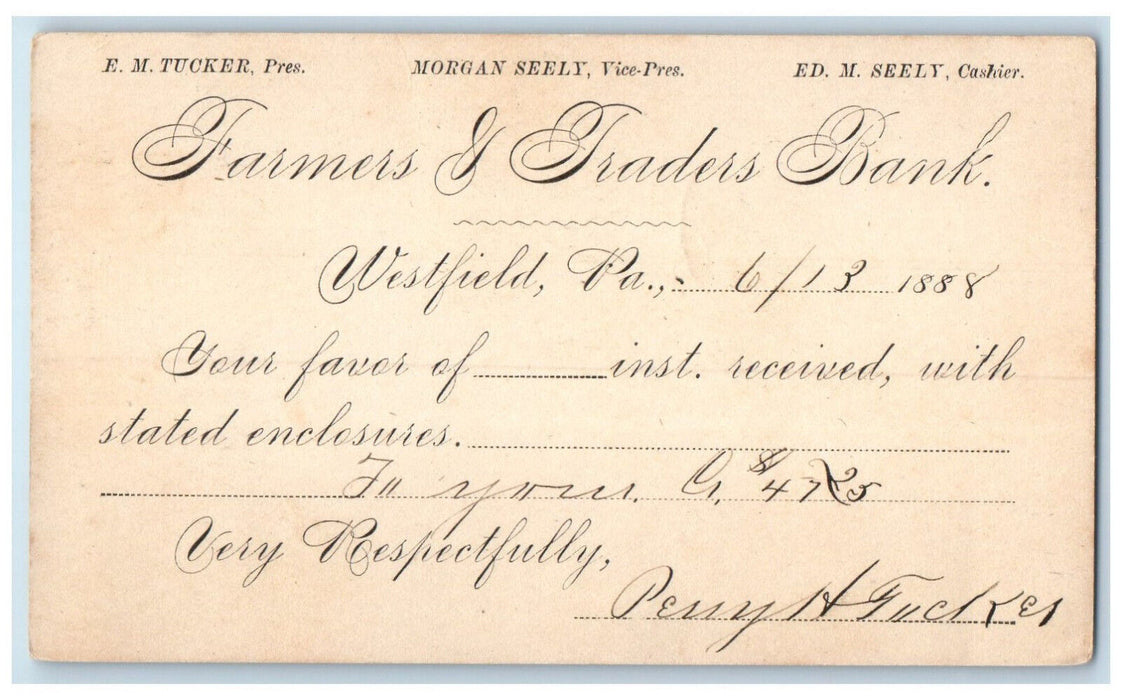 E. M. TUCKER, Pres. MORGAN SEELY, Vice-Pres. ED. M. SEELY, Cashier.
Farmers & Traders Bank.
Westfield, Pa., 6/13 1888
Your favor of inst. received, with
stated enclosures.
To your $47
Very Respectfully,
Perry H Tucker